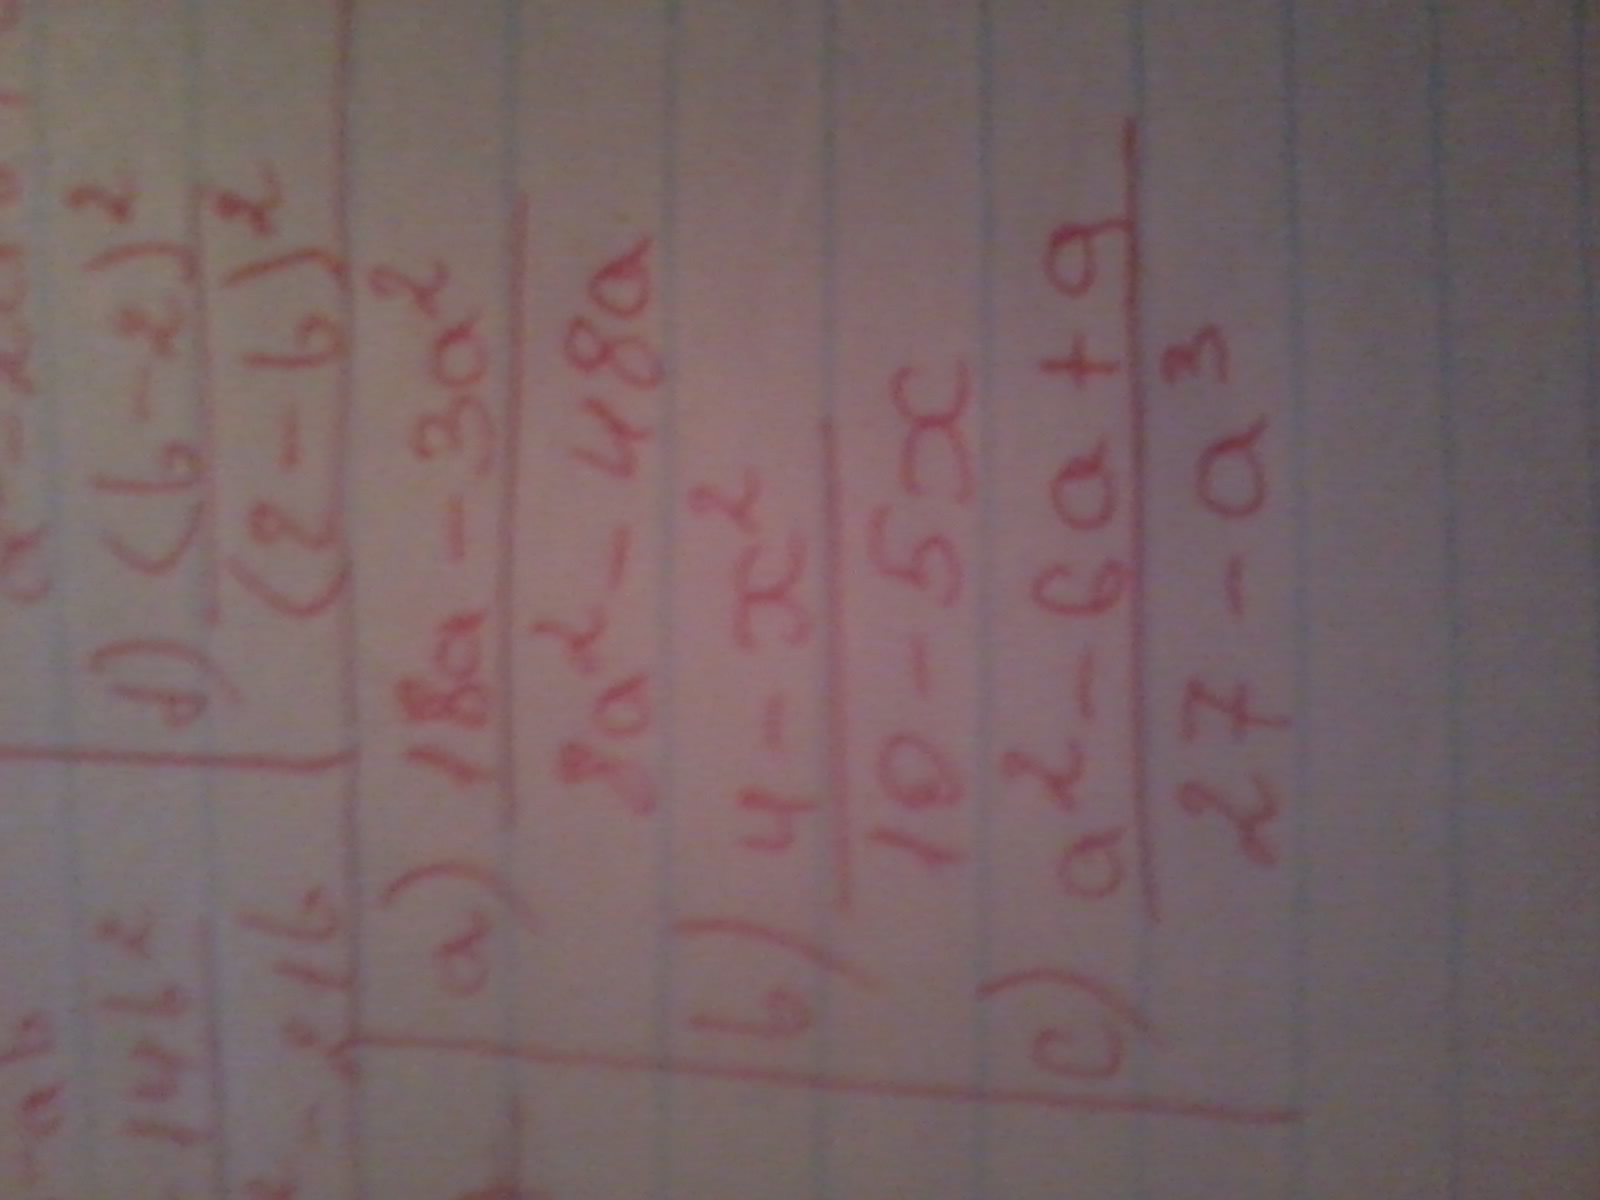 d) (b-2)²
(2-b)²
14b²
a) 18a - 3a²
8a² - 48a
b) 4 - x²
10 - 5x
c) a² - 6a + 9
27 - a³